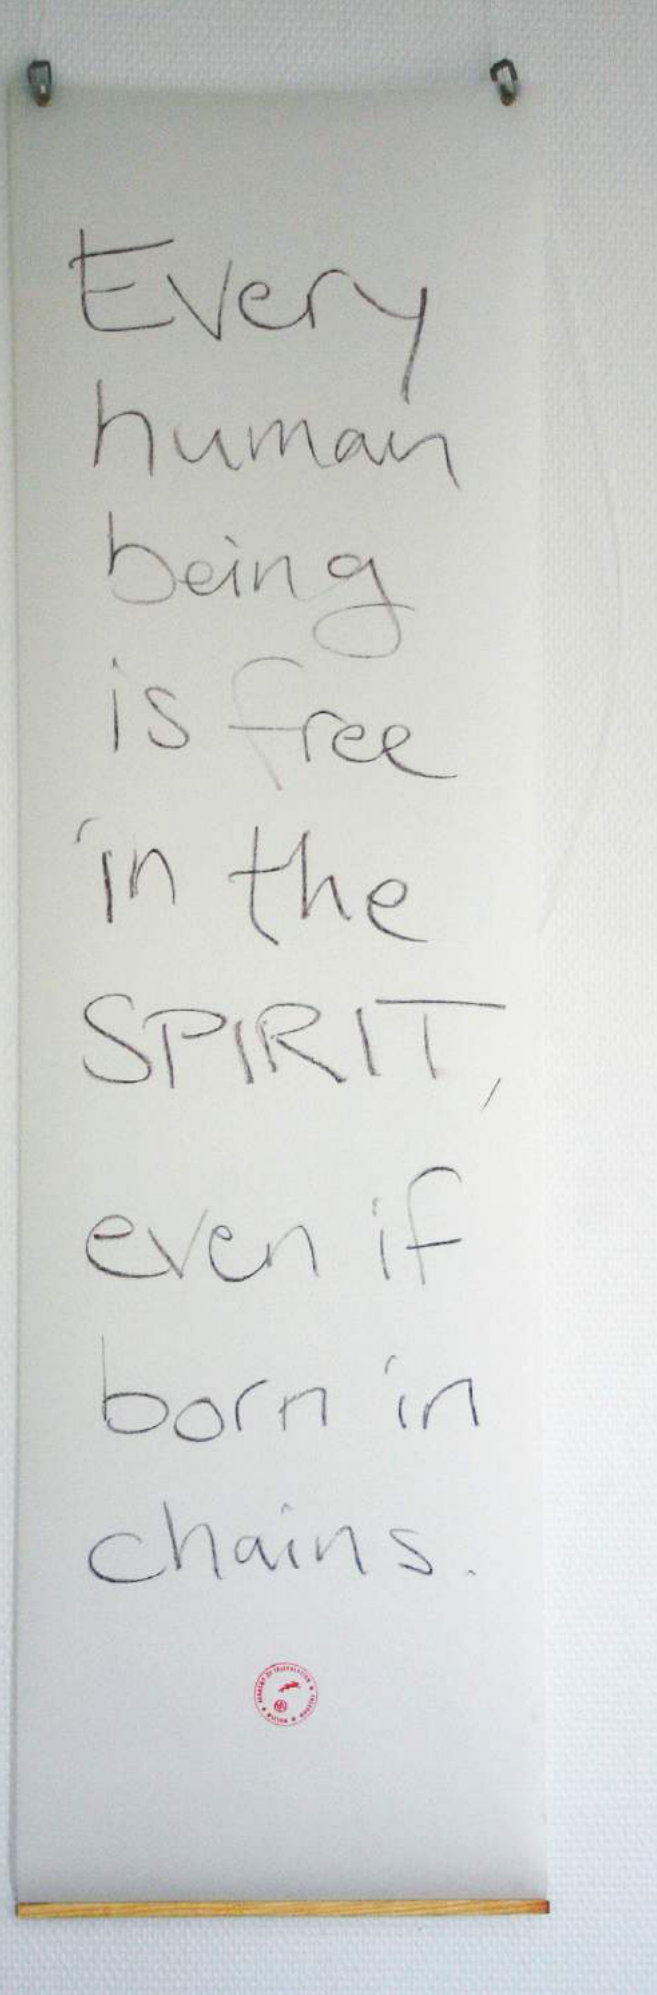 Every
human
being
is free
in the
SPIRIT,
even if
born in
chains.